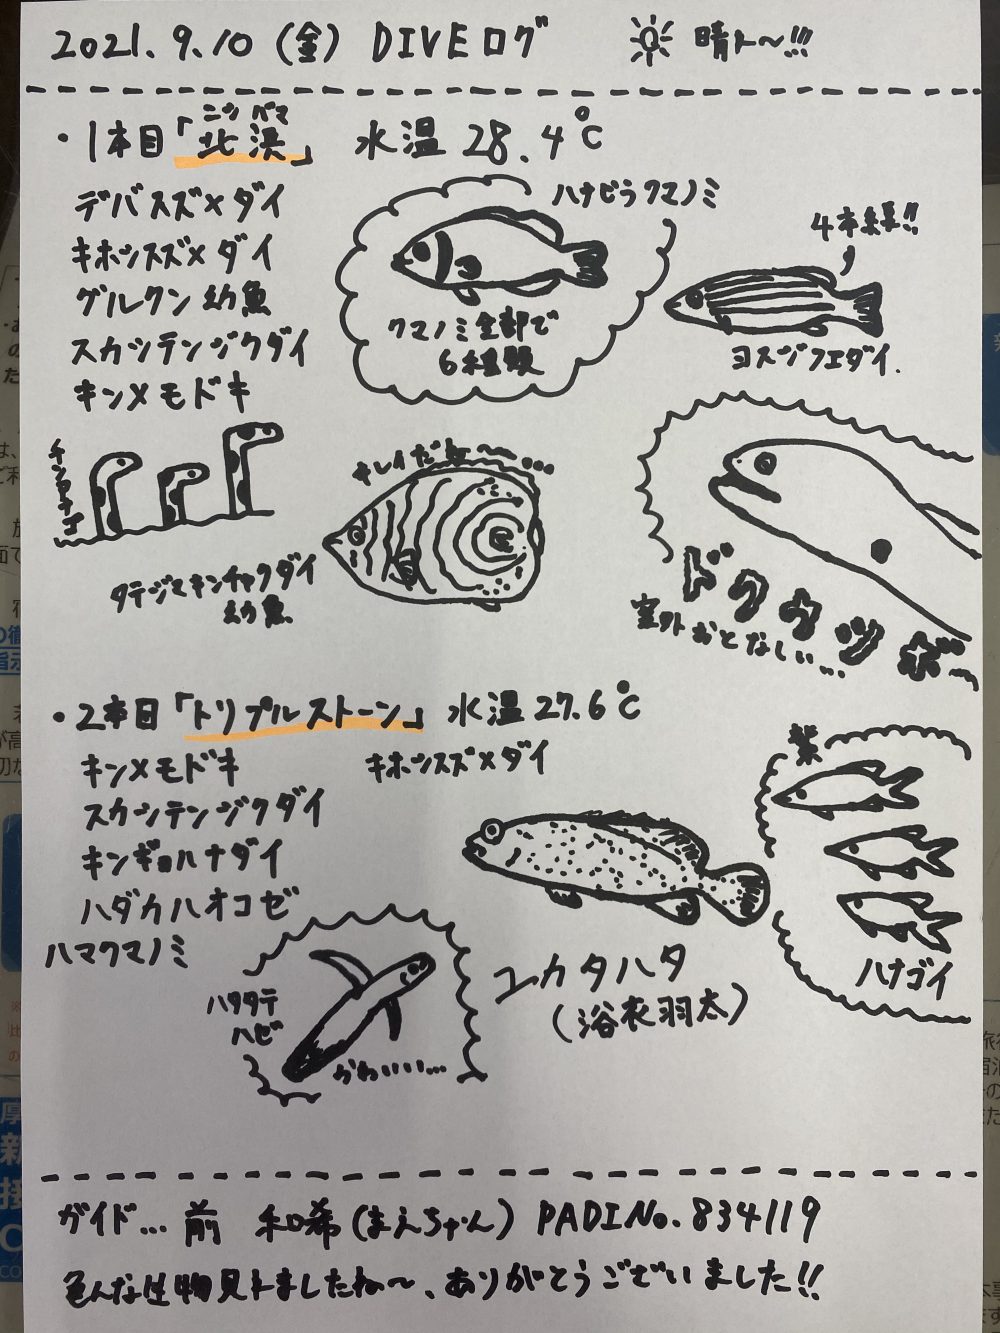 2021.9.10（金） DIVEログ 晴レ〜!!!
・1本目「北浜」 水温 28.4℃
ニシ バマ
デバスズメダイ
キホシスズメダイ
グルクン幼魚
スカシテンジクダイ
キンメモドキ
ハナビラクマノミ
クマノミ全部で
6種類
4本線!!
ヨスジフエダイ.
チンアナゴ
キレイだね〜…
タテジマキンチャクダイ
幼魚
ドクウツボ〜
案外おとなしい…
・2本目「トリプルストーン」 水温27.6℃
キンメモドキ キホシスズメダイ
スカシテンジクダイ
キンギョハナダイ
ハダカハオコゼ
ハマクマノミ
ハタタテ
ハゼ
かわいい…
ユカタハタ
（浴衣羽太）
紫
ハナゴイ
ガイド…前 和希（まえちゃん）PADI No.834119
色んな生物見レましたね〜、ありがとうございました!!